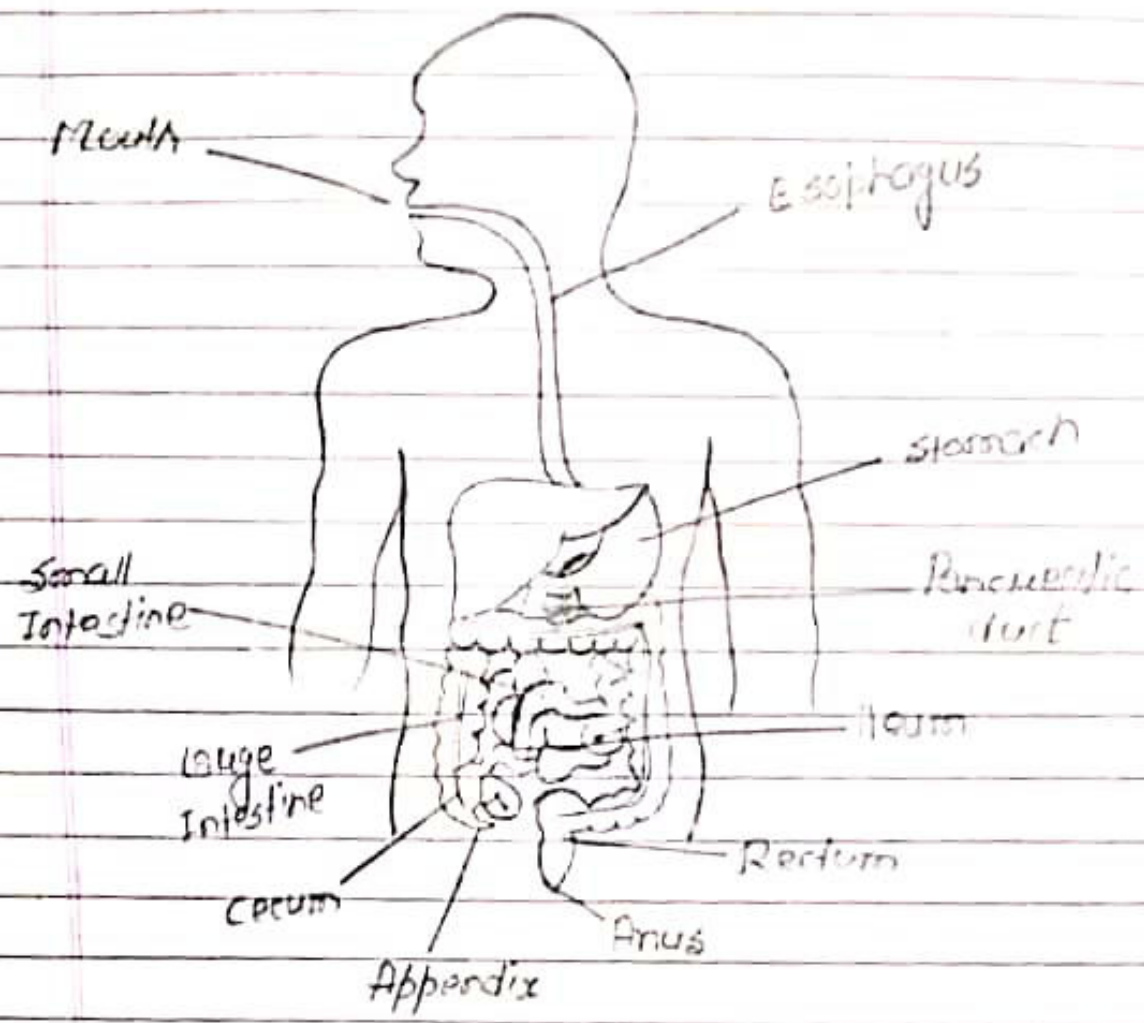 Mouth
Esophagus
Stomach
Small
Intestine
Pancreatic
duct
Ileum
Large
Intestine
Rectum
Cecum
Anus
Appendix